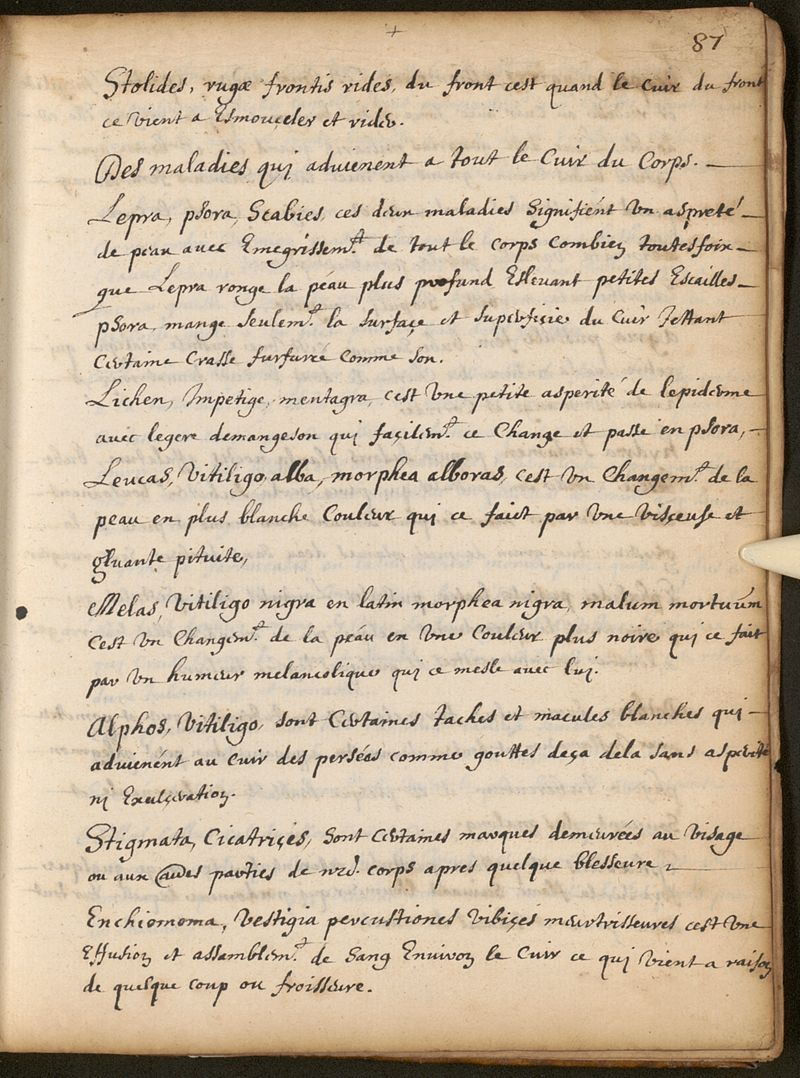 +
87
Stolides, rugæ frontis rides, du front cest quand le cuir du front
ce vient a Esmouçeler et rider.
Des maladies qui advienent a tout le Cuir du Corps. —
Lepra, psora, Scabies, ces deux maladies Signifiént Un aspreté —
de peau avec Emegrissemt. de tout le corps Combien toutesfoix —
que Lepra ronge la péau plus profund Eslevant petites Escailles —
psora, mange seulemt. la surfaçe et superfiçie du Cuir Jettant
Certaine Crasse furfurée Comme son.
Lichen, Impetige, mentagra, cest Une petite asperité de lepiderme
avec legere demangeson qui façilemt. ce Change et passe en psora, —
Leucas, Vitiligo alba, morphea alboras, cest Un Changemt. de la
peau en plus blanche Couleur qui ce faict par Une Visçeuse et
gluante pituite,
Melas, Vitiligo nigra en latin morphea nigra, malum mortuum
Cest Un Changemt. de la péau en Une Couleur plus noire qui ce fait
par Un humeur melancolique qui ce mesle avec luj.
Alphos, Vitiligo, sont Certaines taches et macules blanches qui —
advienént au Cuir des persées comme gouttes deça dela sans asperité
nj Exulçeration.
Stigmata, Cicatriçes, sont Certaines marques demeurées au Visage
ou aux parties de corps apres quelque blesseure
Enchiomoma, Vestigia percustiones Vibiçes meurtrisseures cest Une
Effusion et assemblemt. de Sang Environ le Cuir ce qui Vient a raison
de quelque coup ou froisseure.